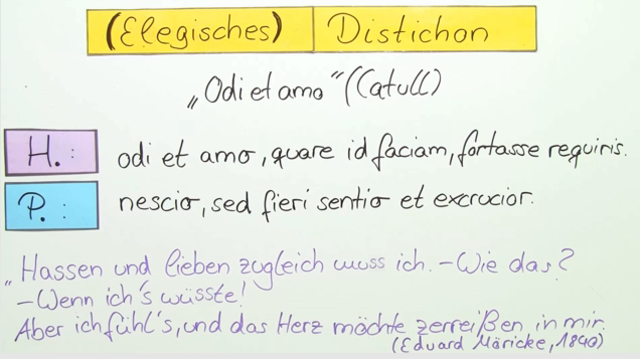 (Elegisches) Distichon
„Odi et amo“ (Catull)
H.: odi et amo, quare id faciam, fortasse requiris.
P.: nescio, sed fieri sentio et excrucior.
„Hassen und lieben zugleich muss ich. – Wie das?
– Wenn ich's wüsste!
Aber ich fühl's, und das Herz möchte zerreißen in mir.
(Eduard Möricke, 1840)